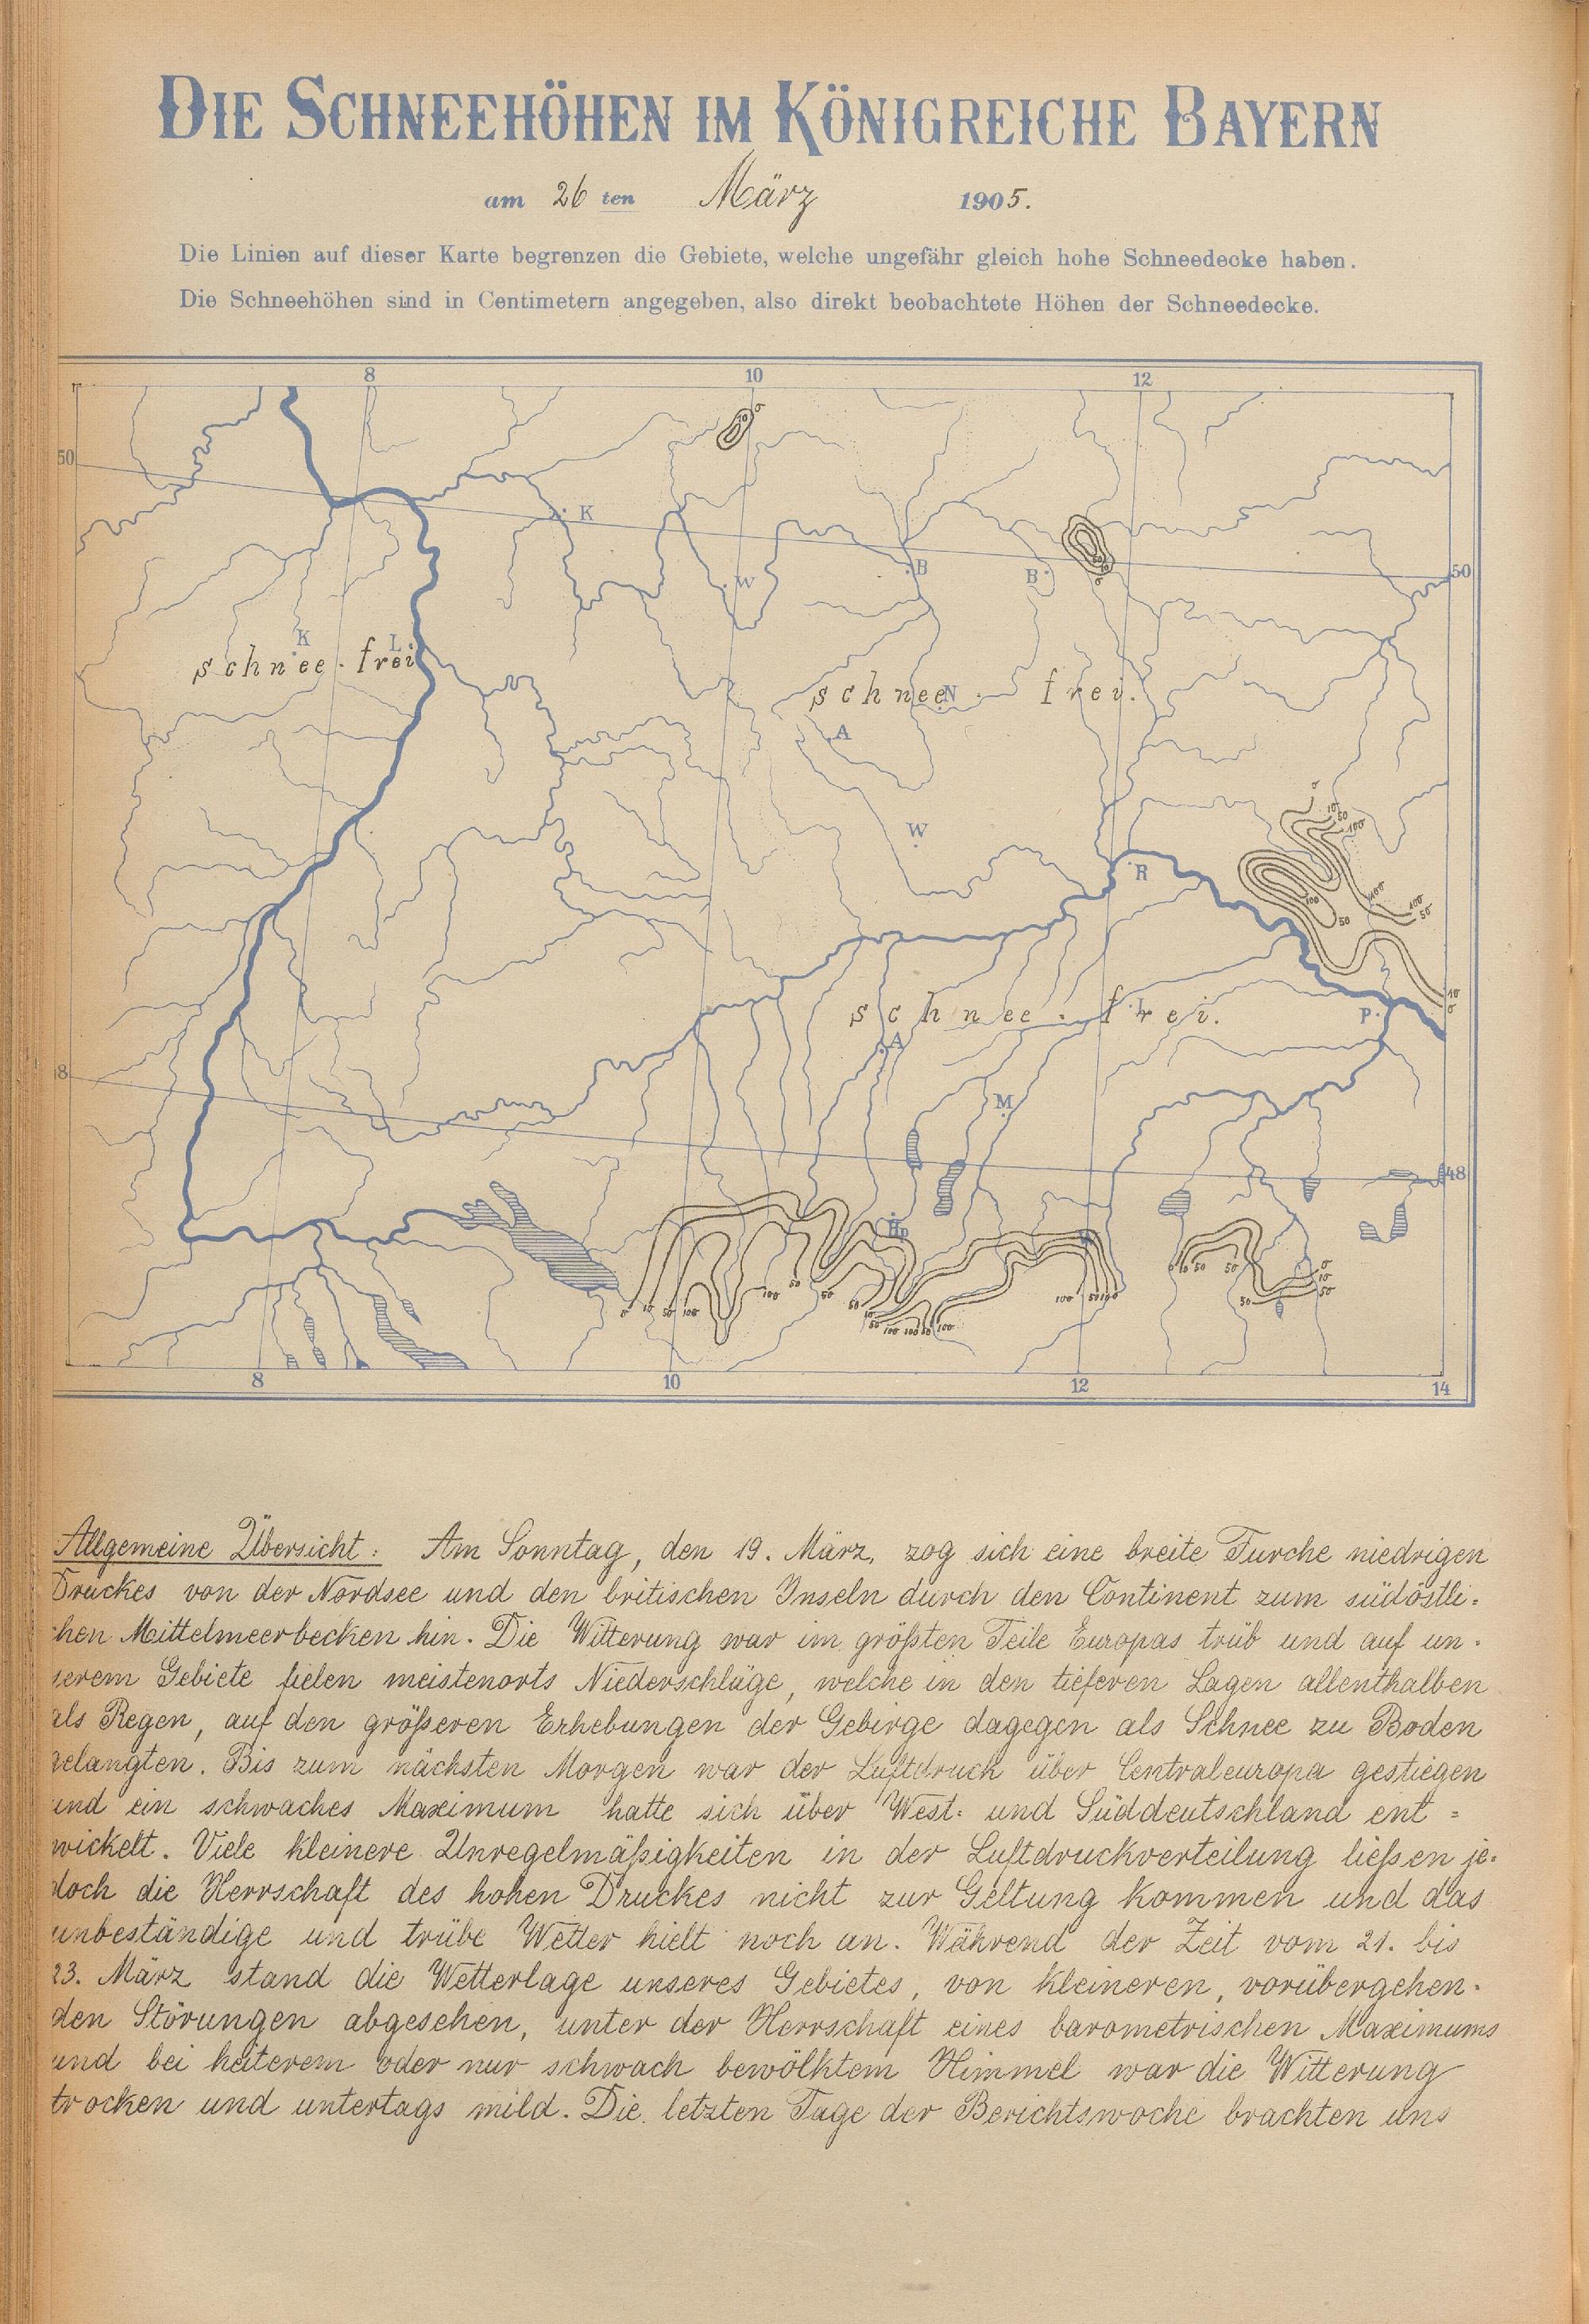 DIE SCHNEEHÖHEN IM KÖNIGREICHE BAYERN
am 26 ten März 1905.
Die Linien auf dieser Karte begrenzen die Gebiete, welche ungefähr gleich hohe Schneedecke haben.
Die Schneehöhen sind in Centimetern angegeben, also direkt beobachtete Höhen der Schneedecke.
8 10 12
50
K
W B B
50
K L
schnee-frei
schnee - frei.
N
A
W
R
100
50
schnee - frei.
P.
A
8
M
48
8 10 12 14
Allgemeine Übersicht: Am Sonntag, den 19. März, zog sich eine breite Furche niedrigen
Druckes von der Nordsee und den britischen Inseln durch den Continent zum südöstli-
chen Mittelmeerbecken hin. Die Witterung war im größten Teile Europas trüb und auf un-
serem Gebiete fielen meistenorts Niederschläge, welche in den tieferen Lagen allenthalben
als Regen, auf den größeren Erhebungen der Gebirge dagegen als Schnee zu Boden
gelangten. Bis zum nächsten Morgen war der Luftdruck über Centraleuropa gestiegen
und ein schwaches Maximum hatte sich über West- und Süddeutschland ent=
wickelt. Viele kleinere Unregelmäßigkeiten in der Luftdruckverteilung ließen je-
doch die Herrschaft des hohen Druckes nicht zur Geltung kommen und das
unbeständige und trübe Wetter hielt noch an. Während der Zeit vom 21. bis
23. März stand die Wetterlage unseres Gebietes, von kleineren, vorübergehen-
den Störungen abgesehen, unter der Herrschaft eines barometrischen Maximums
und bei heiterem oder nur schwach bewölktem Himmel war die Witterung
trocken und untertags mild. Die letzten Tage der Berichtswoche brachten uns